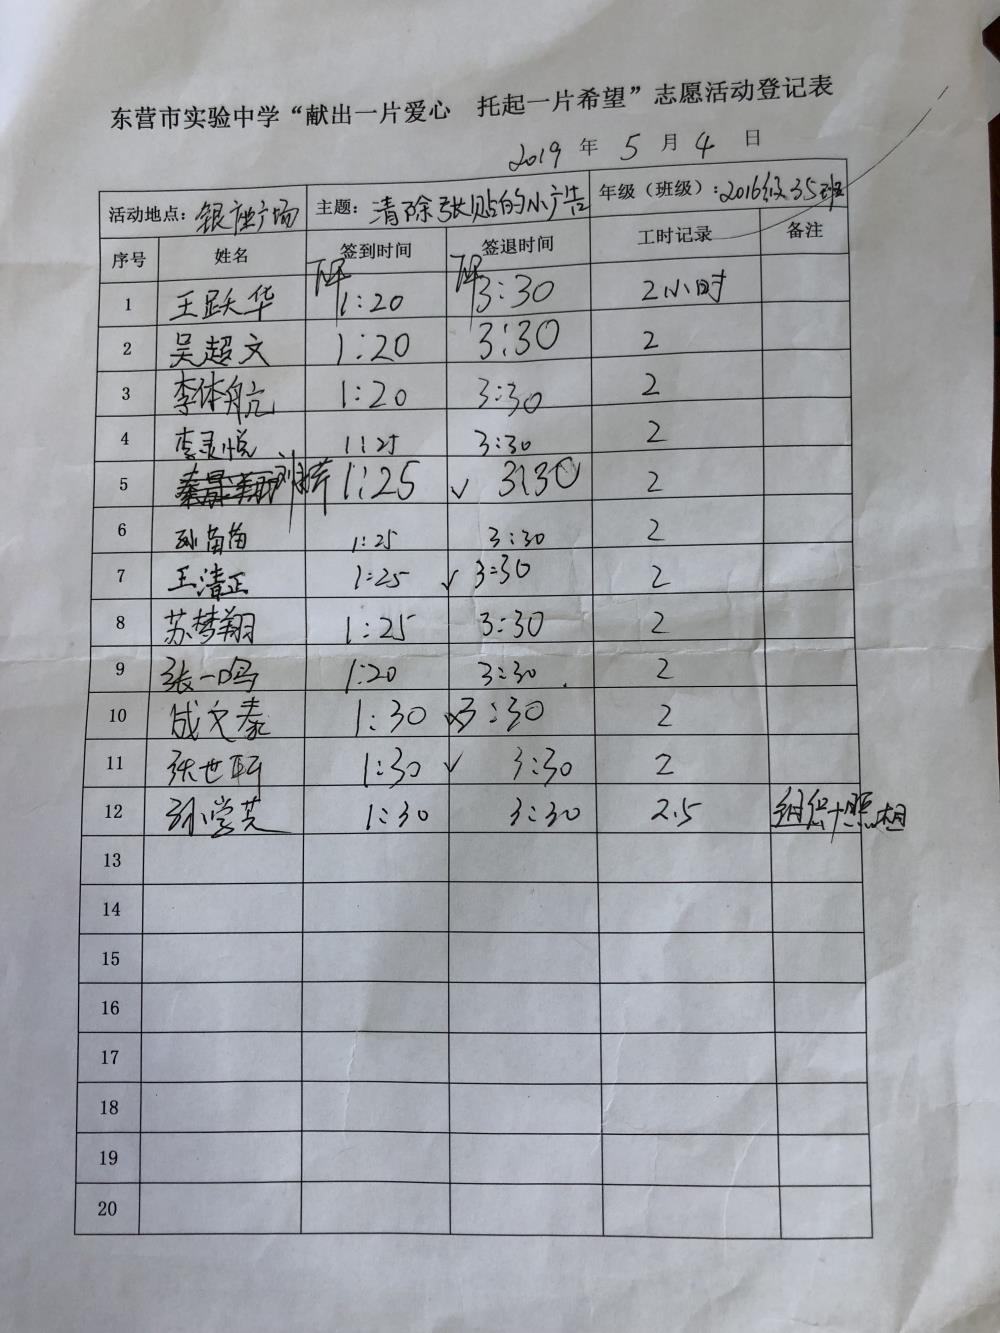 东营市实验中学“献出一片爱心 托起一片希望”志愿活动登记表
2019 年 5 月 4 日
活动地点：银座广场 主题：清除张贴的小广告 年级（班级）：2016级35班
序号 姓名 签到时间 签退时间 工时记录 备注
1 王跃华 下午1:20 下午3:30 2小时
2 吴超文 1:20 3:30 2
3 李体航 1:20 3:30 2
4 李灵悦 1:25 3:30 2
5 1:25 ✓ 3:30 2
6 孙苗苗 1:25 3:30 2
7 王清正 1:25 ✓ 3:30 2
8 苏梦翔 1:25 3:30 2
9 张一鸣 1:20 3:30 2
10 成文泰 1:30 3:30 2
11 张世 1:30 ✓ 3:30 2
12 孙学芃 1:30 3:30 2.5 组织+照相
13
14
15
16
17
18
19
20